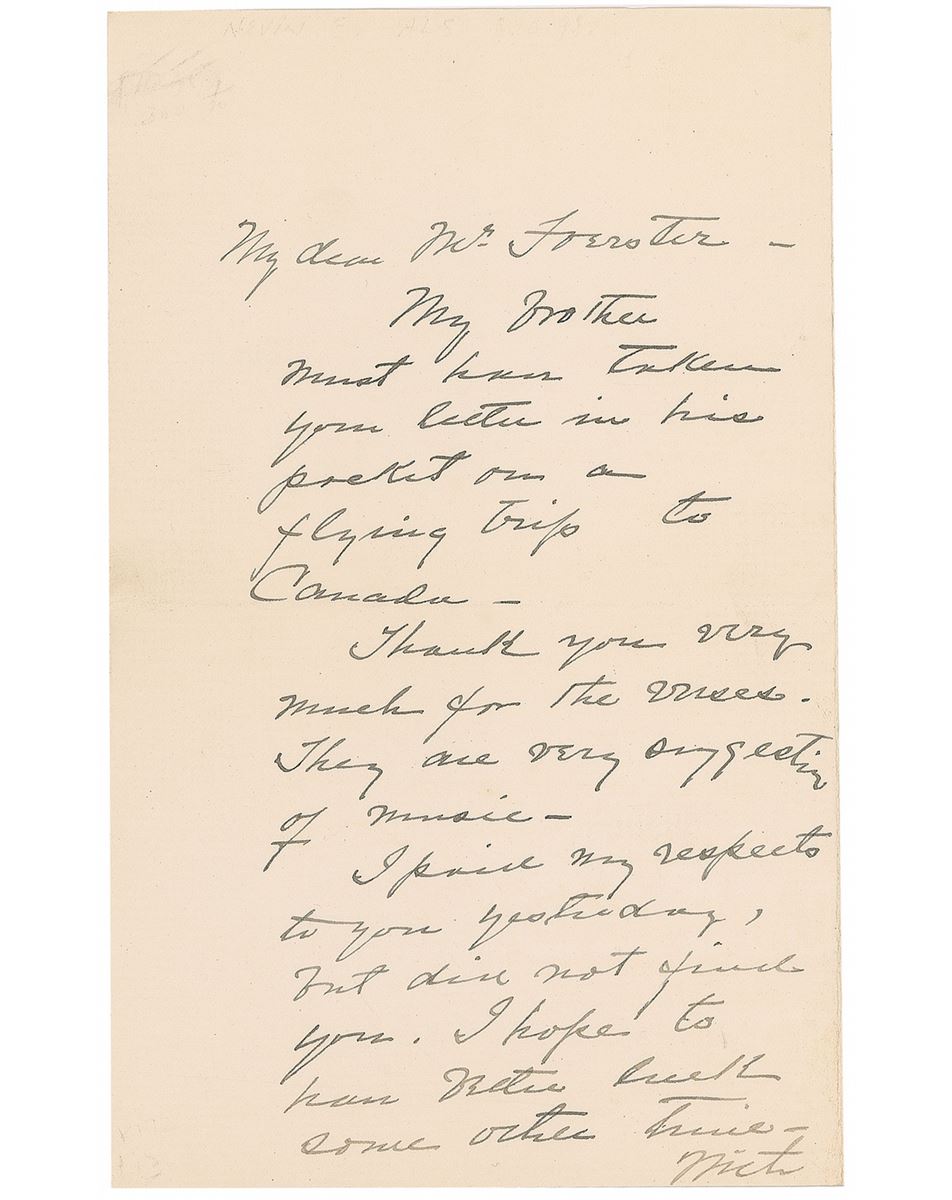 My dear Mr. Foerster –
My brother
must have taken
your letter in his
pocket on a
flying trip to
Canada –
Thank you very
much for the verses.
They are very suggestive
of music –
I paid my respects
to you yesterday,
but did not find
you. I hope to
have better luck
some other time –
With